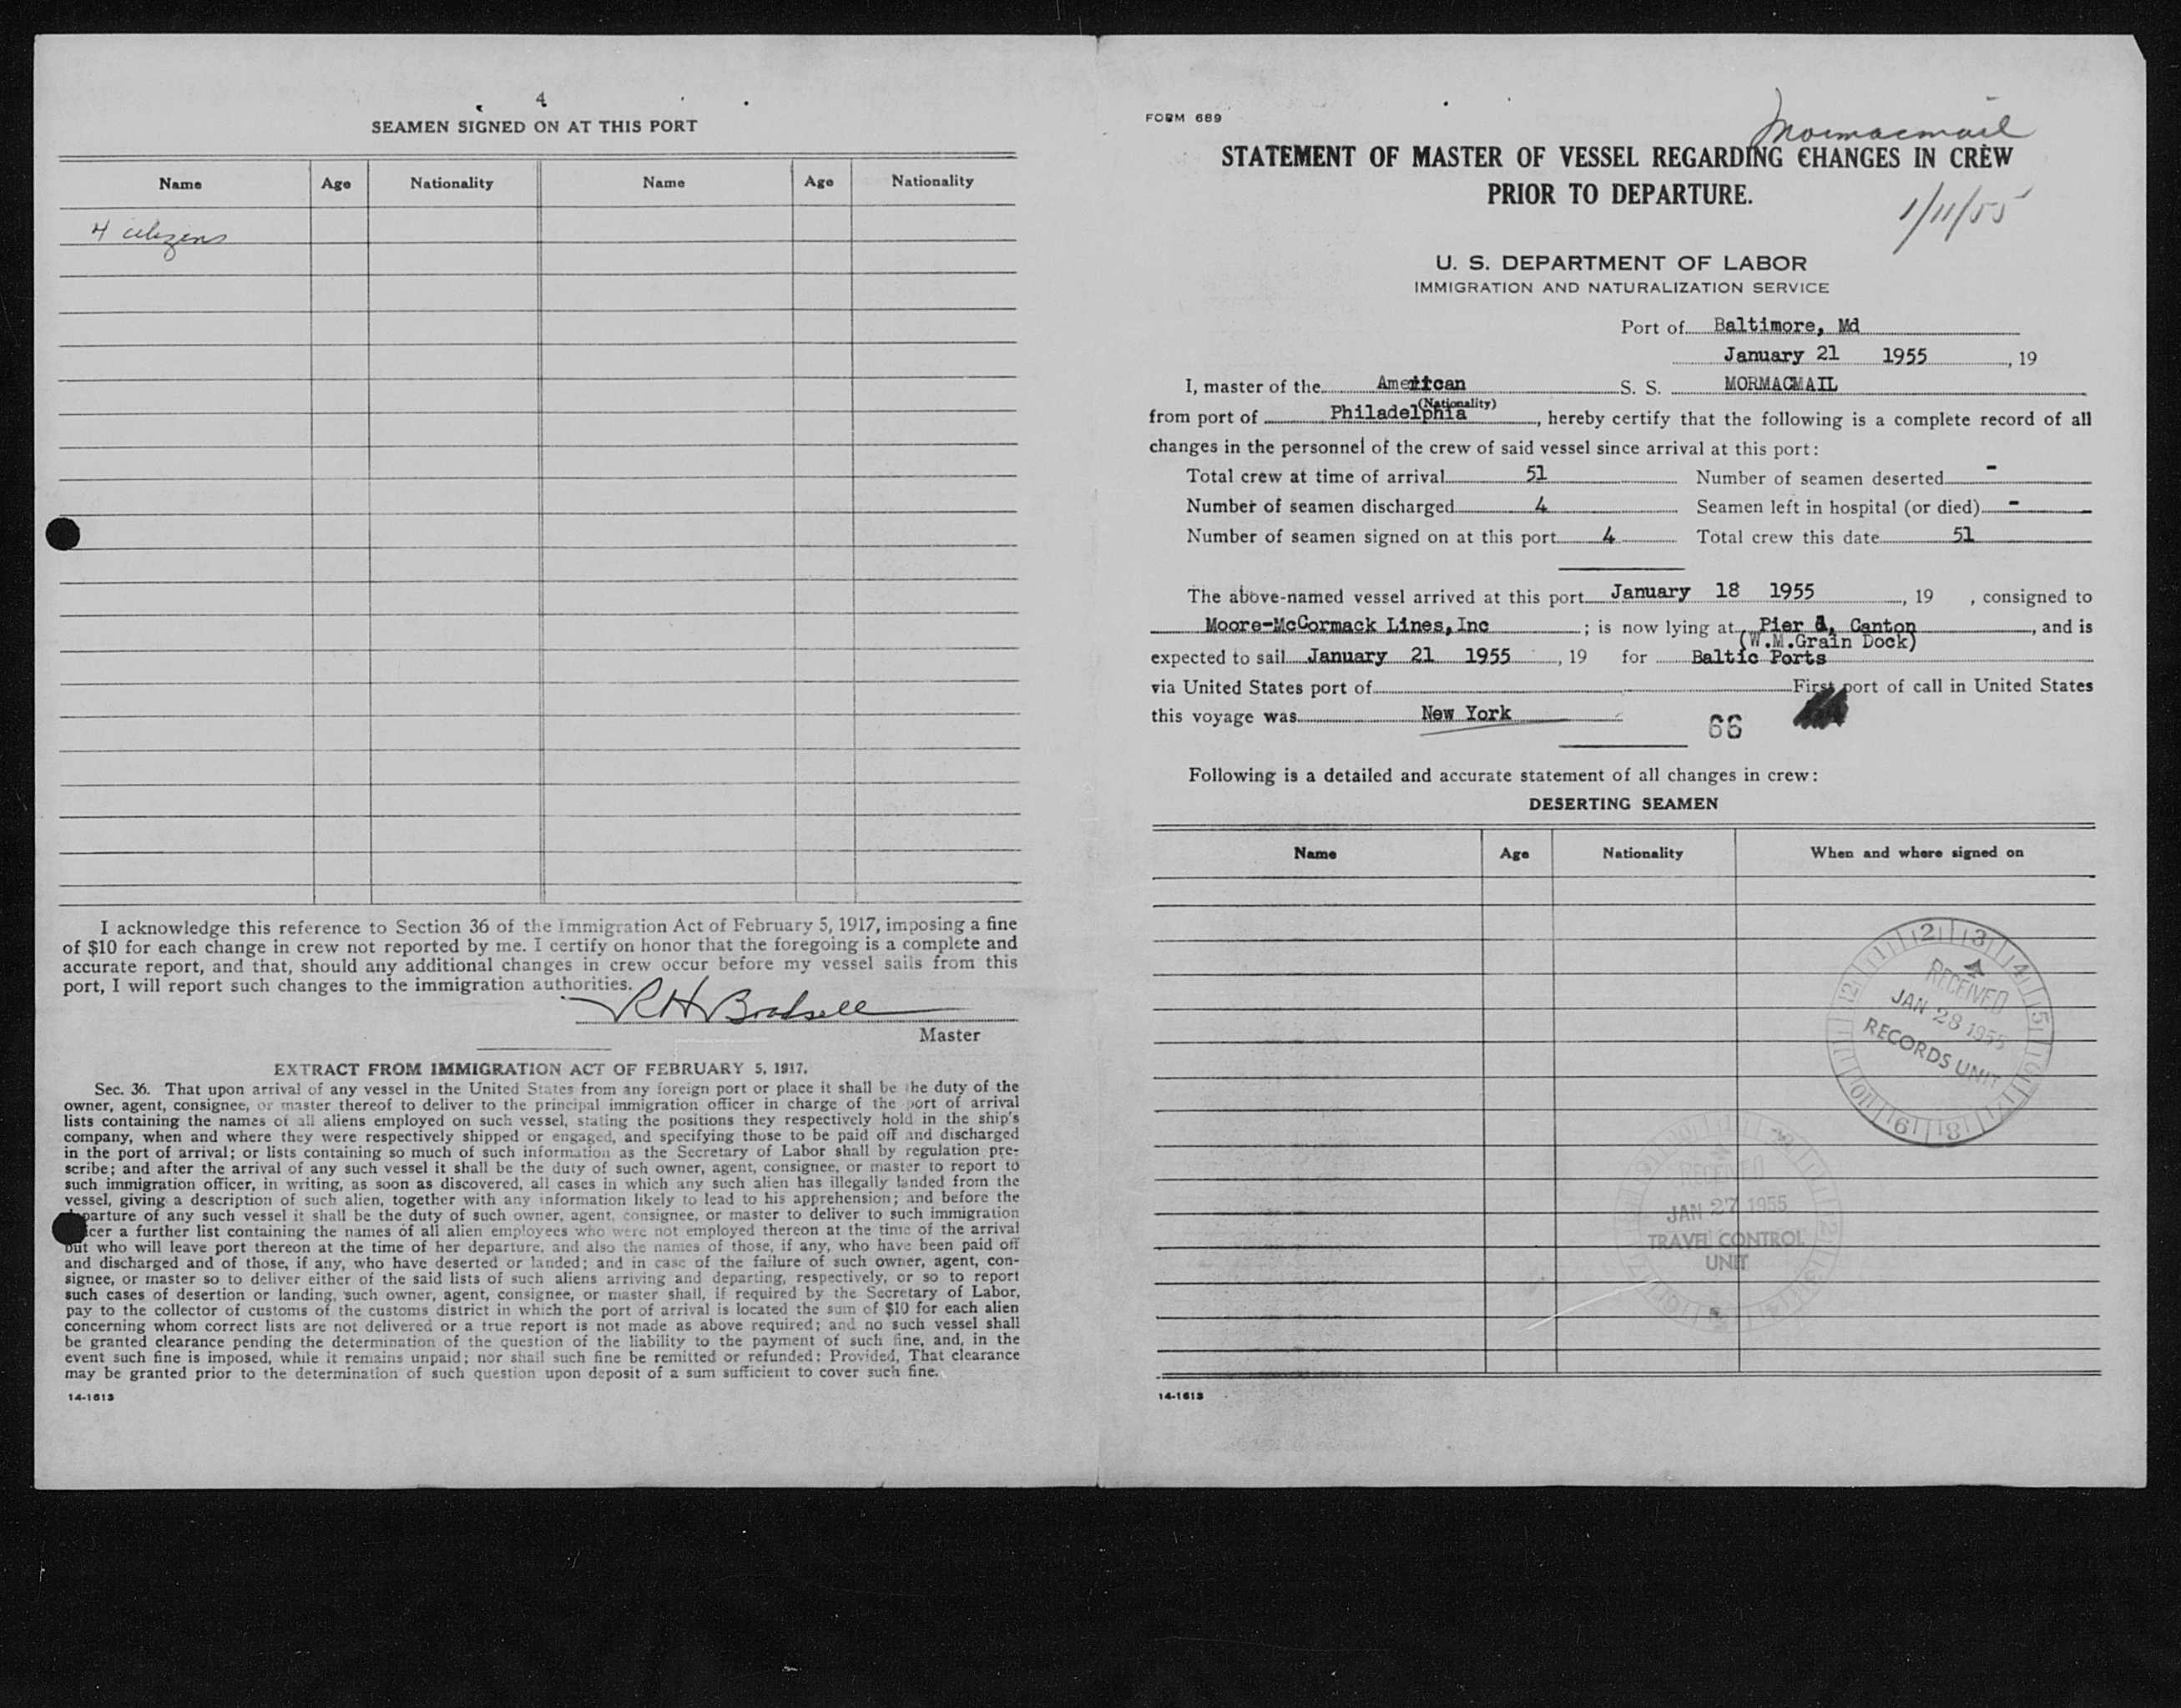 4
SEAMEN SIGNED ON AT THIS PORT
Name Age Nationality Name Age Nationality
4 citizens
I acknowledge this reference to Section 36 of the Immigration Act of February 5, 1917, imposing a fine
of $10 for each change in crew not reported by me. I certify on honor that the foregoing is a complete and
accurate report, and that, should any additional changes in crew occur before my vessel sails from this
port, I will report such changes to the immigration authorities.
Master
EXTRACT FROM IMMIGRATION ACT OF FEBRUARY 5, 1917.
Sec. 36. That upon arrival of any vessel in the United States from any foreign port or place it shall be the duty of the
owner, agent, consignee, or master thereof to deliver to the principal immigration officer in charge of the port of arrival
lists containing the names of all aliens employed on such vessel, stating the positions they respectively hold in the ship's
company, when and where they were respectively shipped or engaged, and specifying those to be paid off and discharged
in the port of arrival; or lists containing so much of such information as the Secretary of Labor shall by regulation pre-
scribe; and after the arrival of any such vessel it shall be the duty of such owner, agent, consignee, or master to report to
such immigration officer, in writing, as soon as discovered, all cases in which any such alien has illegally landed from the
vessel, giving a description of such alien, together with any information likely to lead to his apprehension; and before the
departure of any such vessel it shall be the duty of such owner, agent, consignee, or master to deliver to such immigration
officer a further list containing the names of all alien employees who were not employed thereon at the time of the arrival
but who will leave port thereon at the time of her departure, and also the names of those, if any, who have been paid off
and discharged and of those, if any, who have deserted or landed; and in case of the failure of such owner, agent, con-
signee, or master so to deliver either of the said lists of such aliens arriving and departing, respectively, or so to report
such cases of desertion or landing, such owner, agent, consignee, or master shall, if required by the Secretary of Labor,
pay to the collector of customs of the customs district in which the port of arrival is located the sum of $10 for each alien
concerning whom correct lists are not delivered or a true report is not made as above required; and no such vessel shall
be granted clearance pending the determination of the question of the liability to the payment of such fine, and, in the
event such fine is imposed, while it remains unpaid; nor shall such fine be remitted or refunded: Provided, That clearance
may be granted prior to the determination of such question upon deposit of a sum sufficient to cover such fine.
14-1613
FORM 689
Mormacmail
STATEMENT OF MASTER OF VESSEL REGARDING CHANGES IN CREW
PRIOR TO DEPARTURE.
1/11/55
U. S. DEPARTMENT OF LABOR
IMMIGRATION AND NATURALIZATION SERVICE
Port of Baltimore, Md
January 21 1955, 19
I, master of the American S. S. MORMACMAIL
(Nationality)
from port of Philadelphia, hereby certify that the following is a complete record of all
changes in the personnel of the crew of said vessel since arrival at this port:
Total crew at time of arrival 51 Number of seamen deserted -
Number of seamen discharged 4 Seamen left in hospital (or died) -
Number of seamen signed on at this port 4 Total crew this date 51
The above-named vessel arrived at this port January 18 1955, 19 , consigned to
Moore-McCormack Lines, Inc ; is now lying at Pier Canton, and is
(W.M.Grain Dock)
expected to sail January 21 1955, 19 for Baltic Ports
via United States port of First port of call in United States
this voyage was New York
66
Following is a detailed and accurate statement of all changes in crew:
DESERTING SEAMEN
Name Age Nationality When and where signed on
RECEIVED
JAN 28 1955
RECORDS UNIT
RECEIVED
JAN 27 1955
TRAVEL CONTROL
UNIT
14-1613